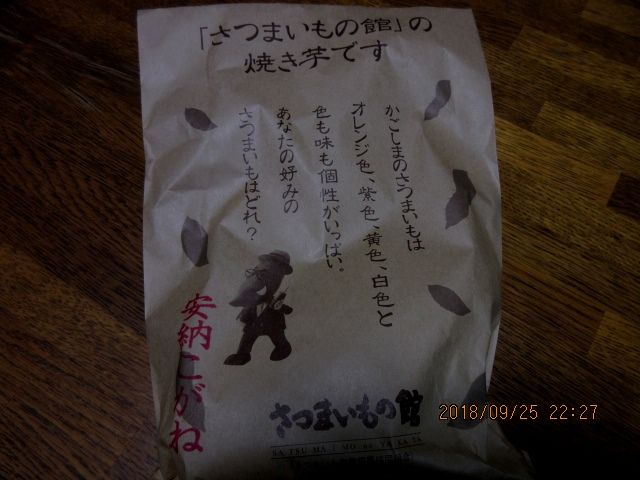 「さつまいもの館」の
焼き芋です
かごしまのさつまいもは
オレンジ色、紫色、黄色、白色と
色も味も個性がいっぱい。
あなたの好みの
さつまいもはどれ？
安納こがね
さつまいもの館
SA TSU MA I MO no YA KA TA
2018/09/25 22:27